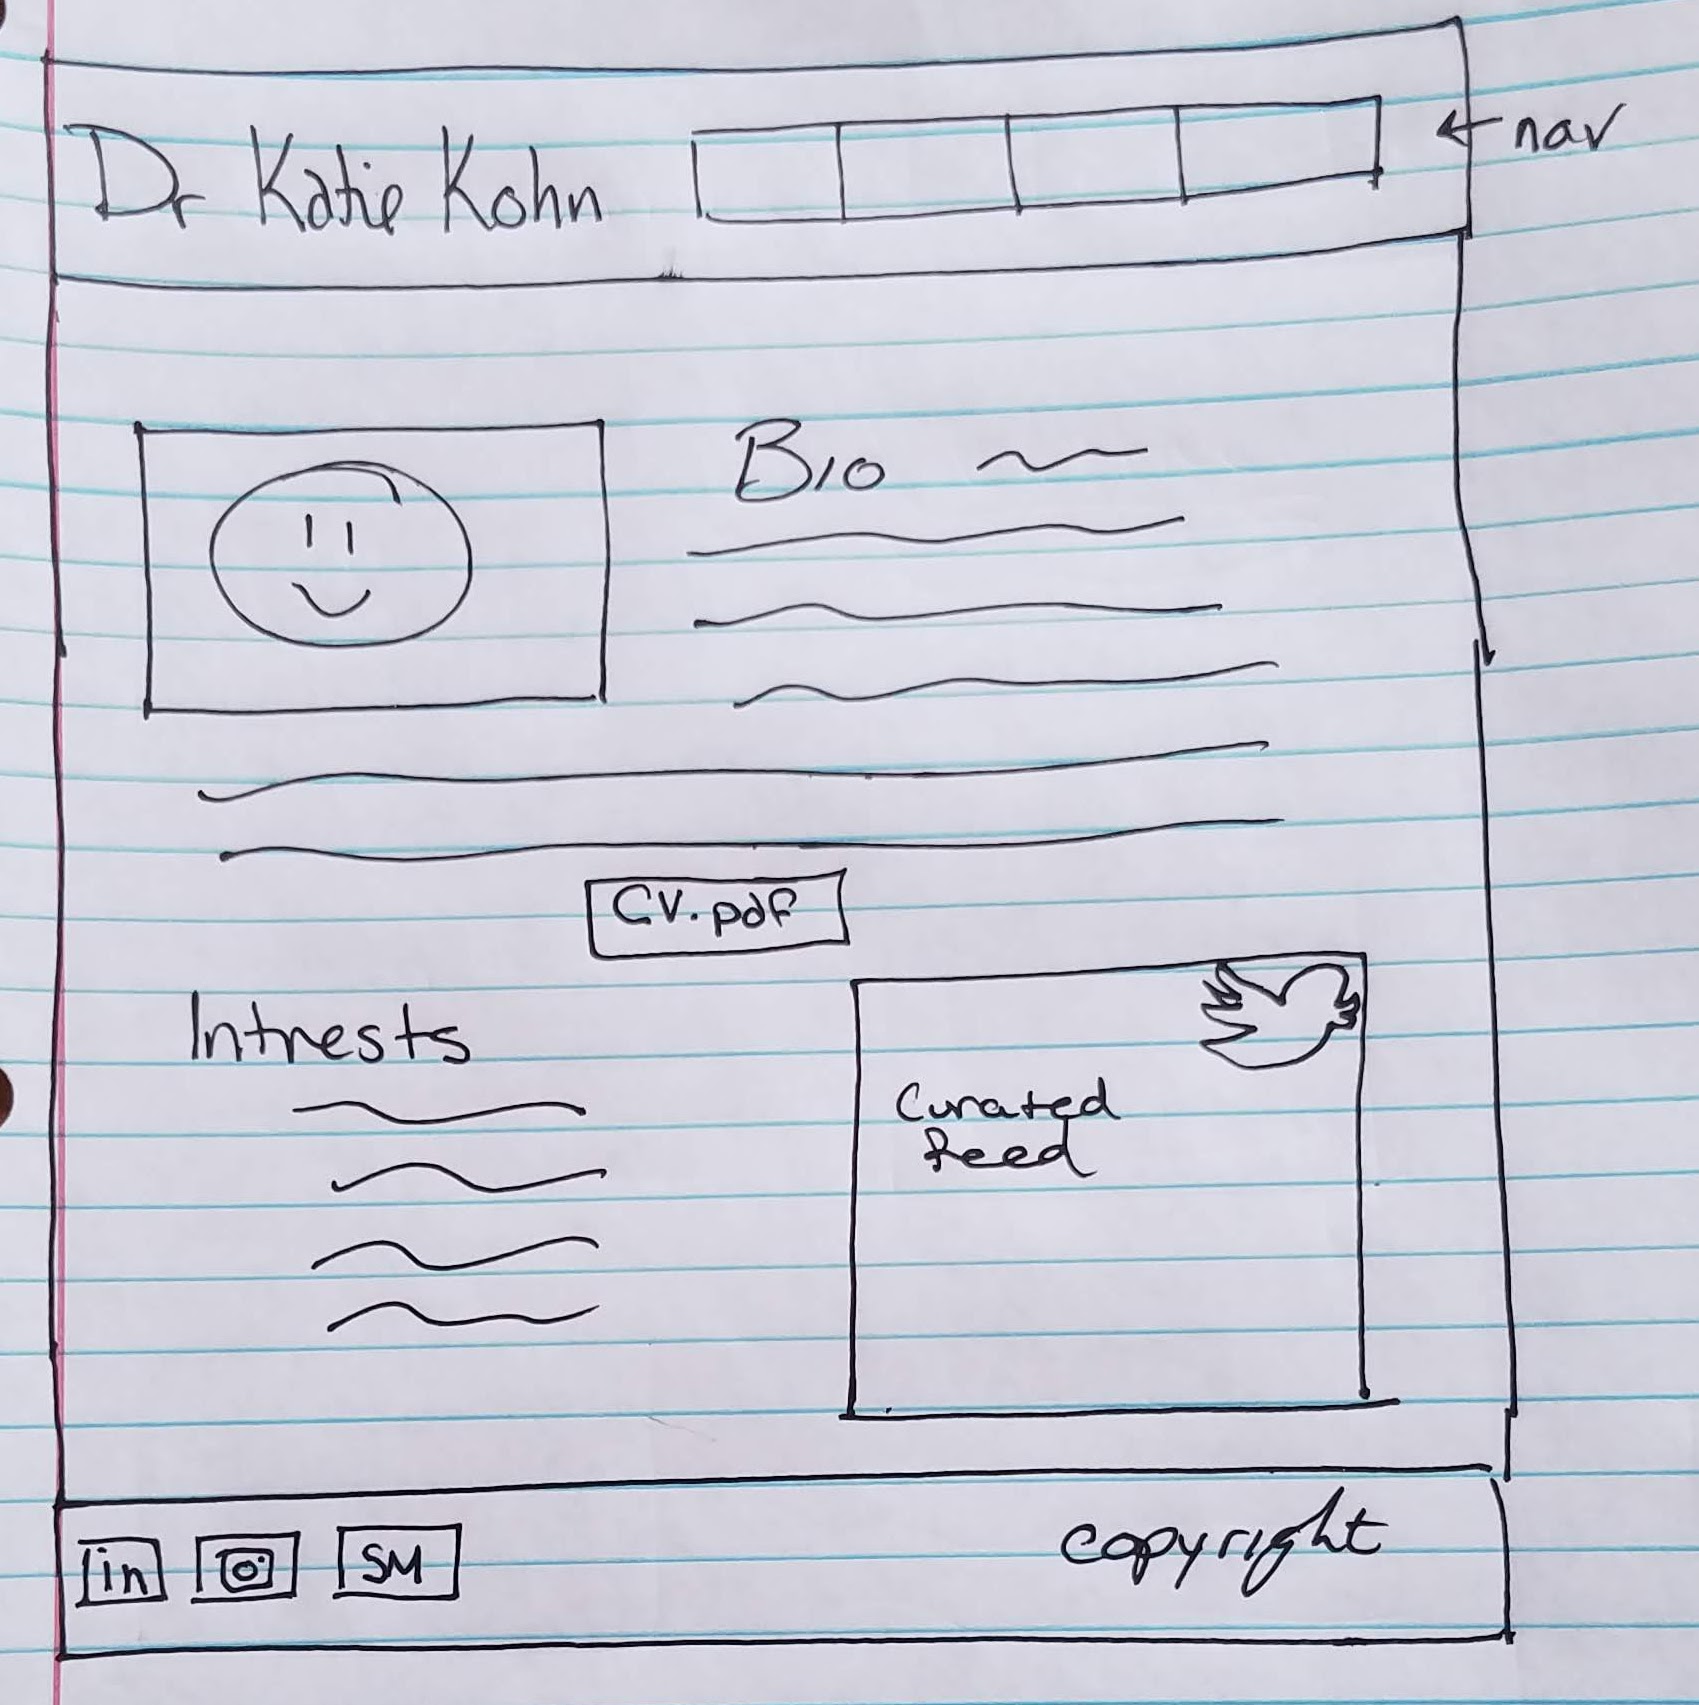 Dr Katie Kohn
← nav
Bio
CV.pdf
Intrests
Curated
feed
in
SM
copyright